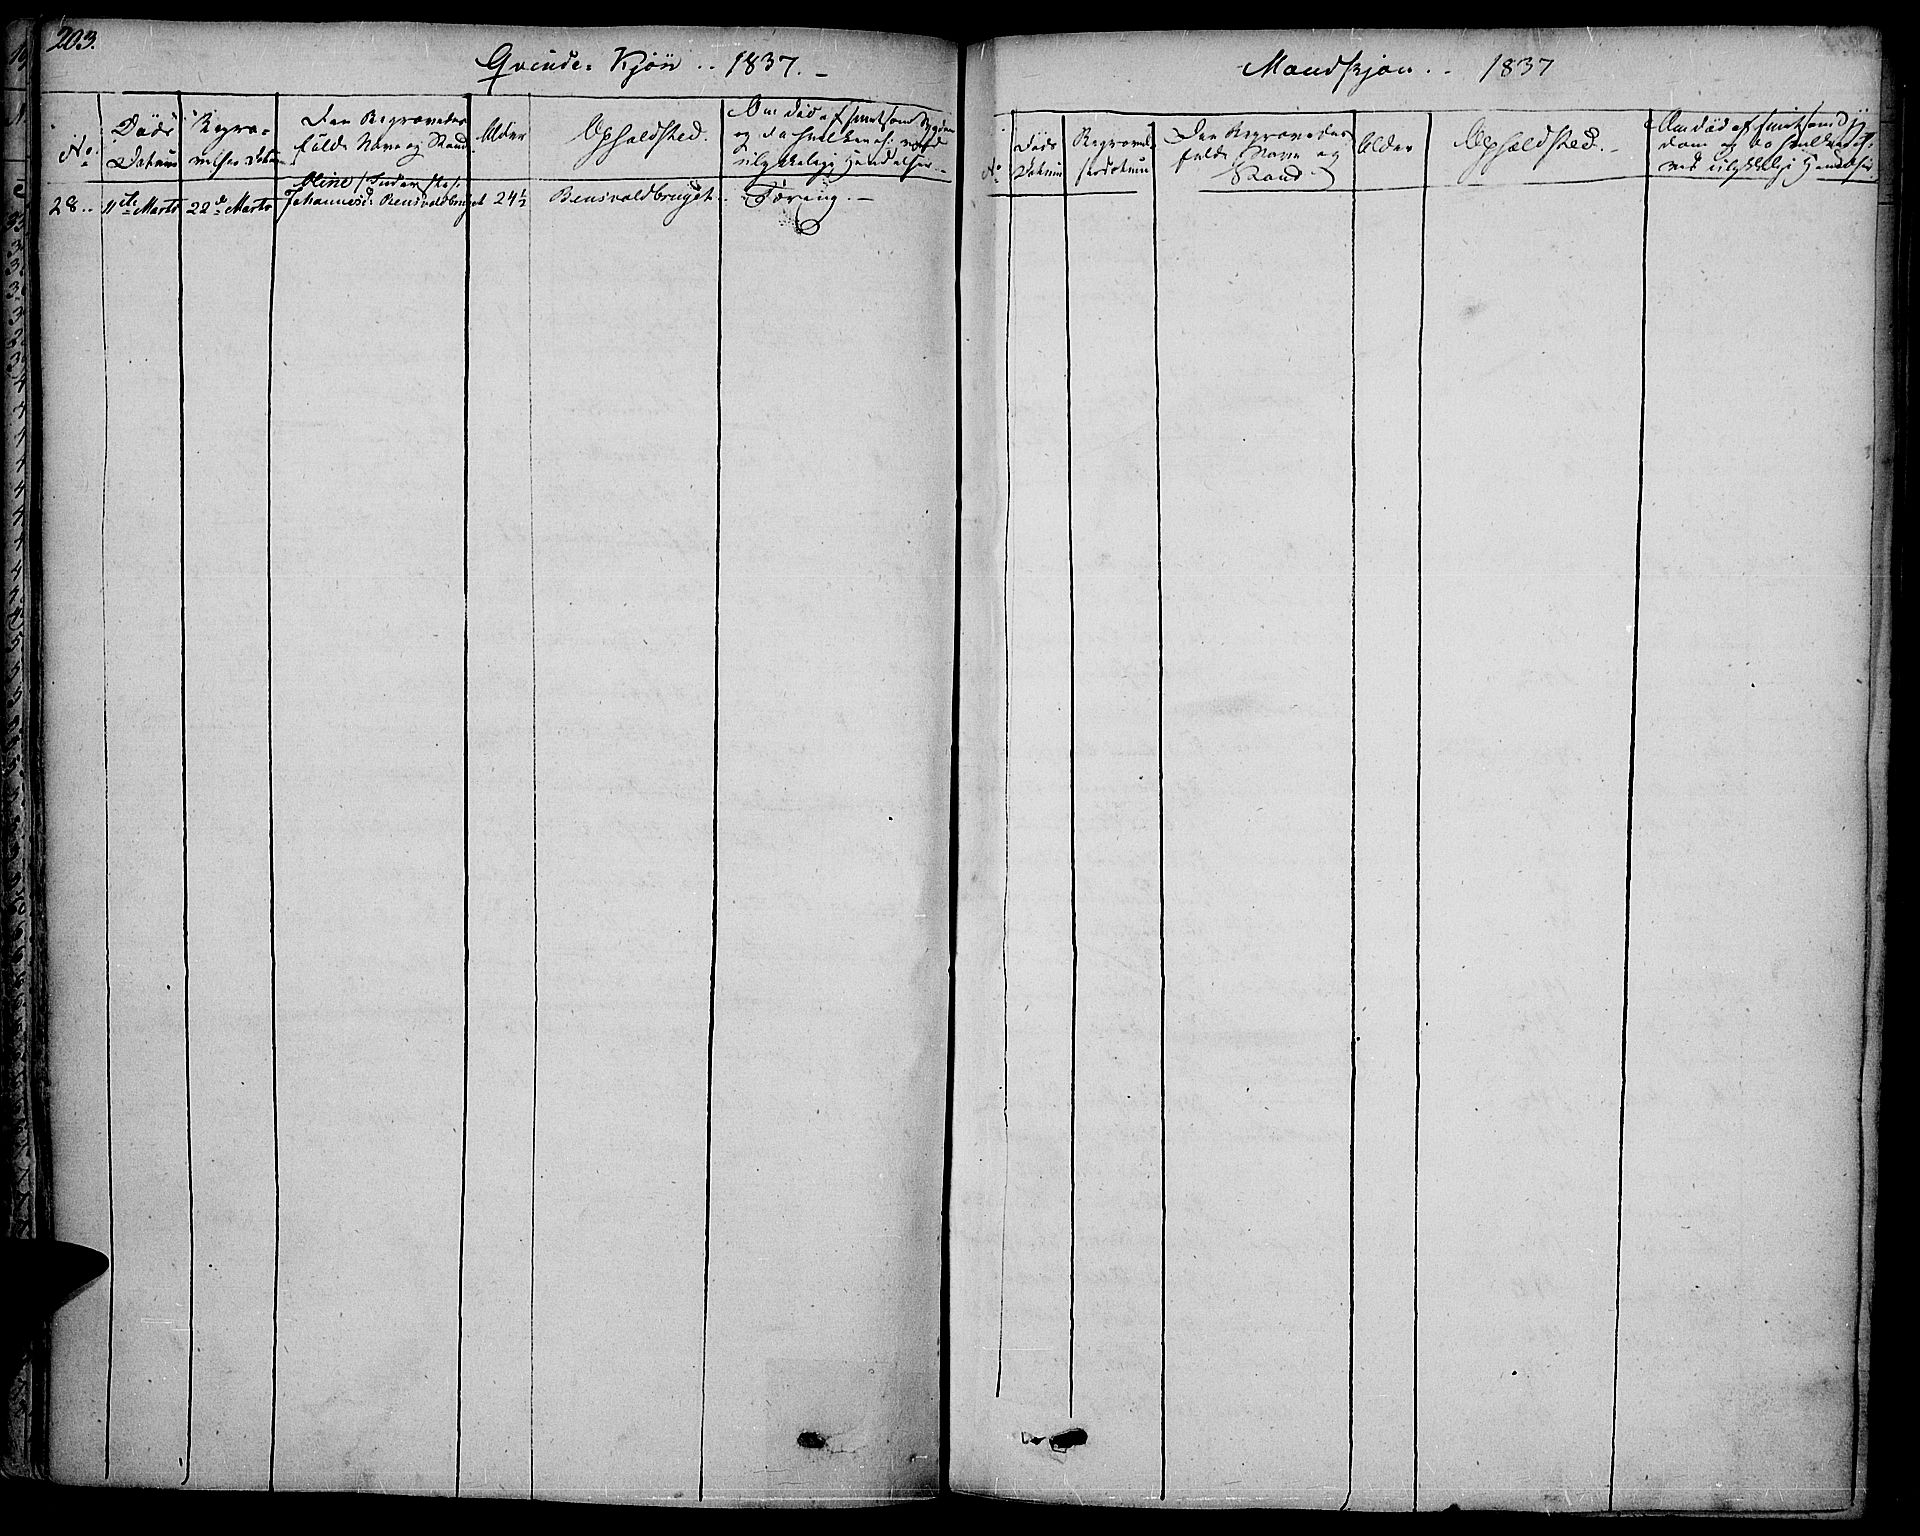 203.
Qvinde-Kjøn .. 1837. –
No.
Døds
Datum
Begra-
velses Datum
Den Begravedes
fulde Navn og Stand
Alder
Opholdsted.
Om død af smitsom Sygdom
og da hvilken el: ved
ulykkelig Hændelser. –
28..
11te Marts
22de Marts
Oline
Johannesd: Rensvoldbruget
24½
Rensvoldbruget. –
Tæring. –
Mandkjøn. . 1837
No
Døds
Datum
Begravel-
sesdatum
Den Begravedes
fulde Navn og
Stand
Alder
Opholdsted. –
Om død af smitsom Syg
dom og da hvilken el:
ved ulykkelig Hændelser